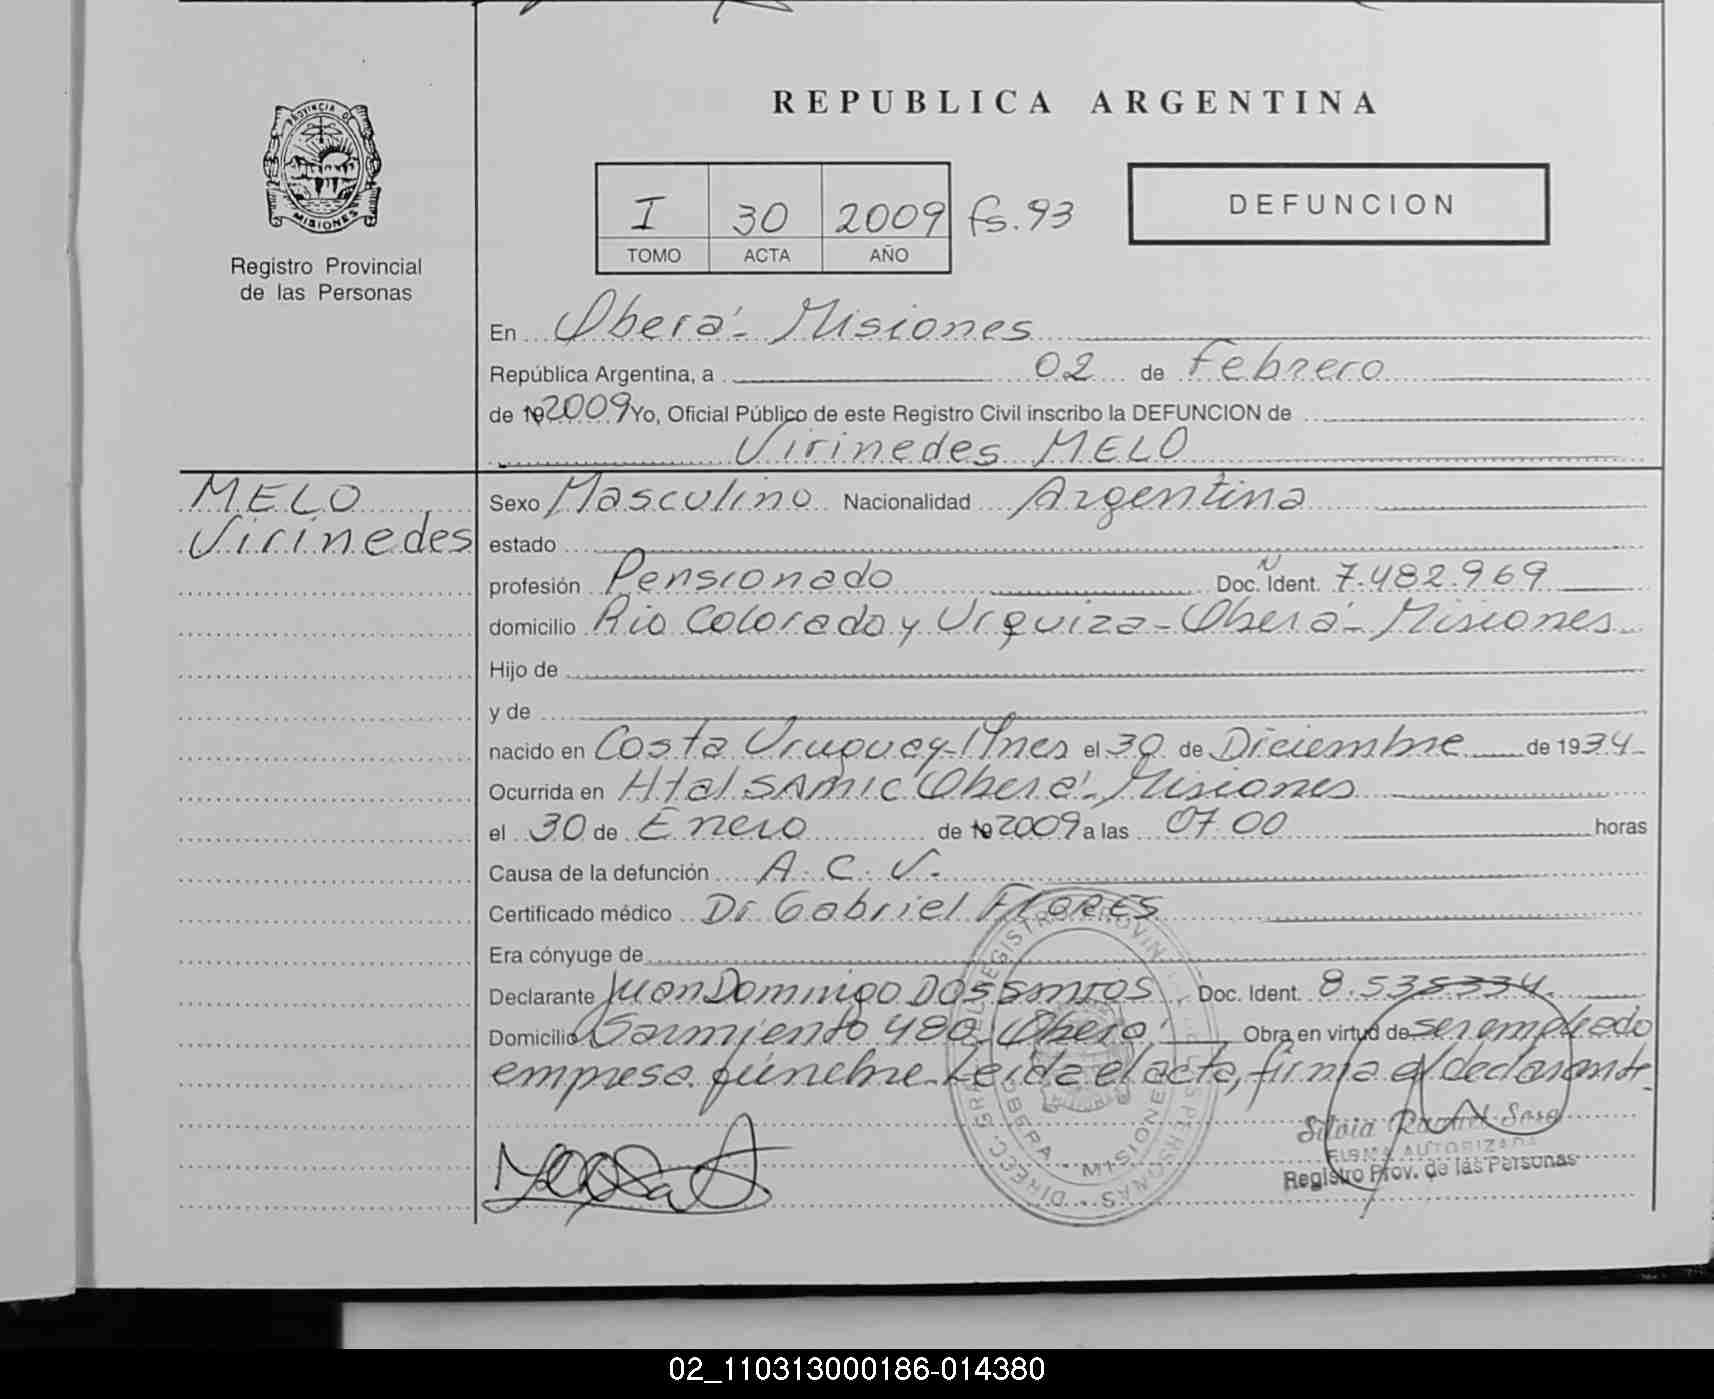 REPUBLICA ARGENTINA
PROVINCIA DE
MISIONES
Registro Provincial
de las Personas
I 30 2009 fs. 93
TOMO ACTA AÑO
DEFUNCION
En Oberá - Misiones
República Argentina, a 02 de Febrero
de 192009 Yo, Oficial Público de este Registro Civil inscribo la DEFUNCION de
Virinedes MELO
MELO
Virinedes
Sexo Masculino Nacionalidad Argentina
estado
profesión Pensionado Doc. N Ident. 7.482.969
domicilio Rio Colorado y Urquiza - Oberá - Misiones
Hijo de
y de
nacido en Costa Uruguay - Mnes el 30 de Diciembre de 1934
Ocurrida en Htal SAMIC Oberá - Misiones
el 30 de Enero de 192009 a las 07 00 horas
Causa de la defunción A. C. V.
Certificado médico Dr Gabriel FLORES
Era cónyuge de
Declarante Juan Domingo DOS SANTOS Doc. Ident. 8.535334
Domicilio Sarmiento 480 Oberá Obra en virtud de ser empleado
empresa fúnebre. Leida el acta, firma el declarante
OBERA MISIONES
Silvia Raquel Sosa
FIRMA AUTORIZADA
Registro Prov. de las Personas
02_110313000186-014380